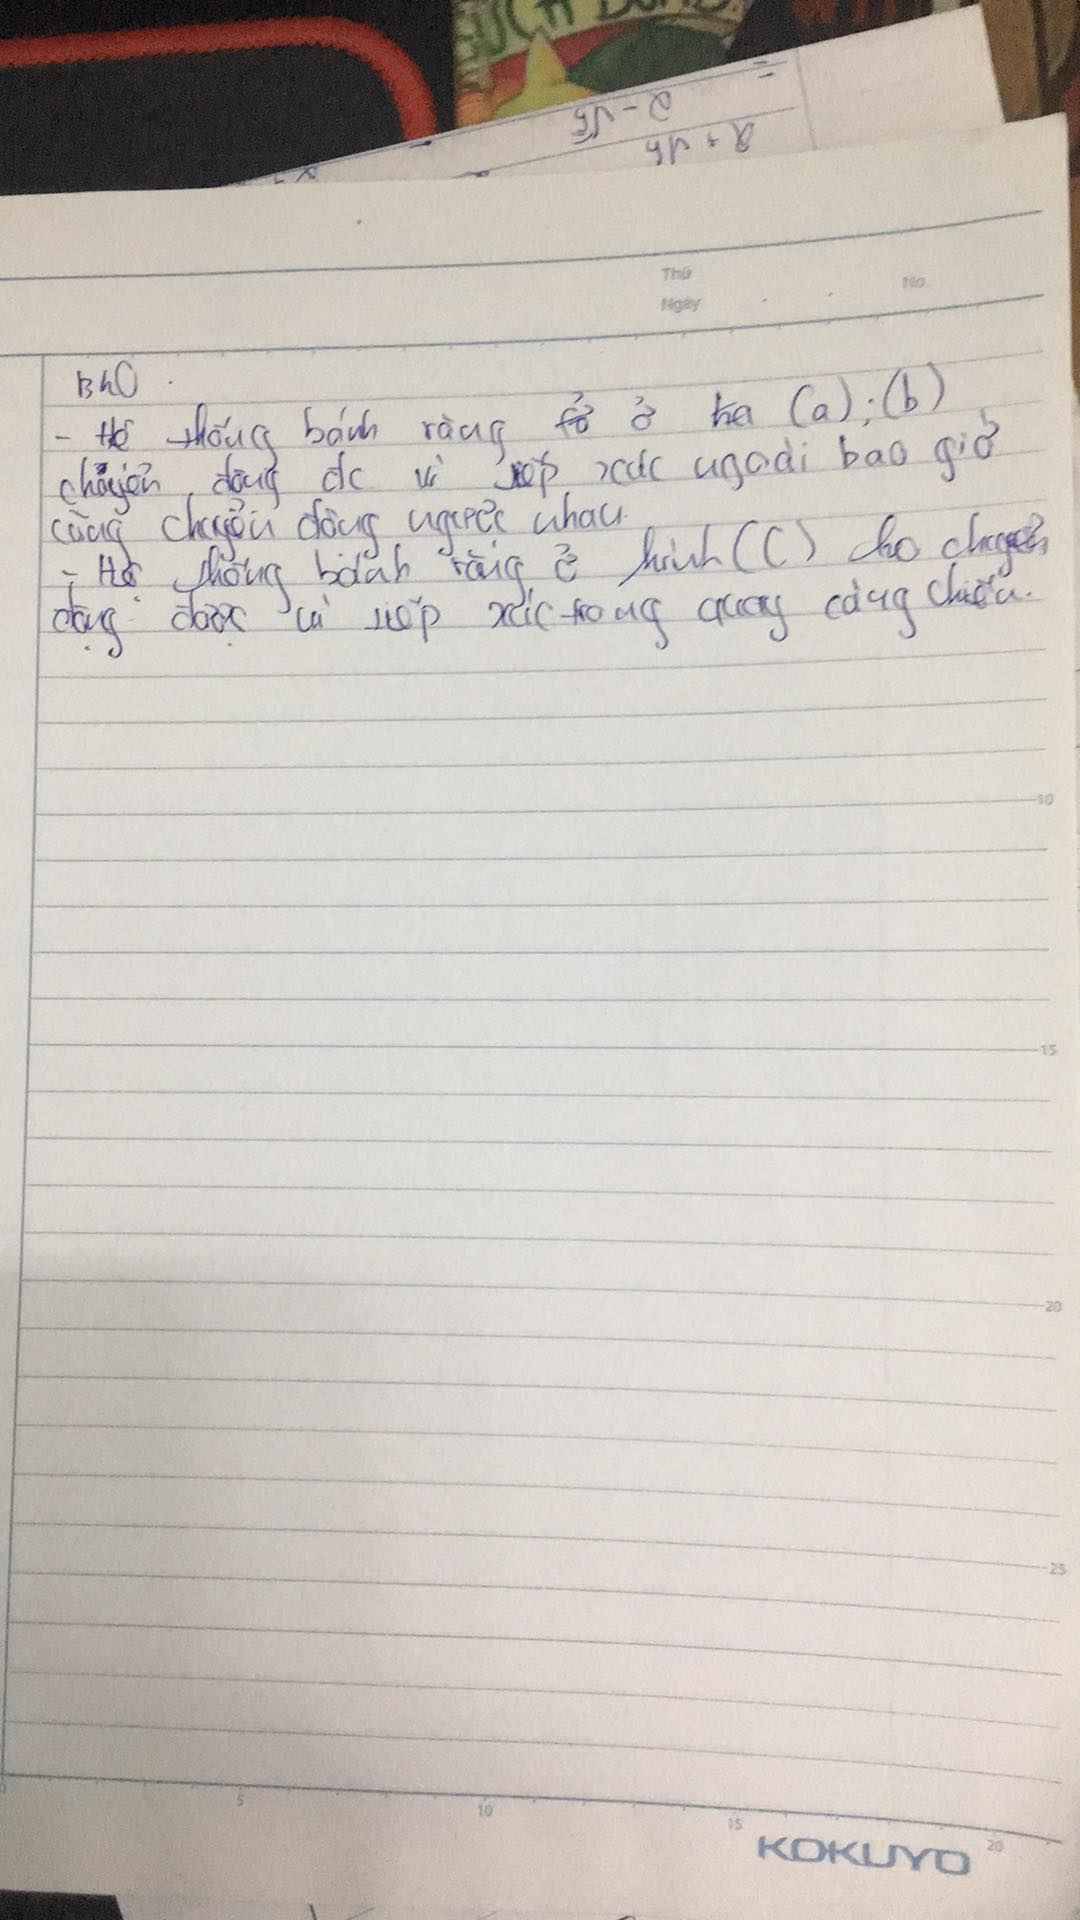 2 - √5
2 + √5
Thứ
Ngày
No.
B40
- Hệ thống bánh răng ở (a); (b)
chuyển động đc vì tiếp xúc ngoài bao giờ
cũng chuyển động ngược nhau.
- Hệ thống bánh răng ở hình (C) cho chuyển
động được vì tiếp xúc trong quay cùng chiều.
10
15
20
25
5
10
15
20
KOKUYO